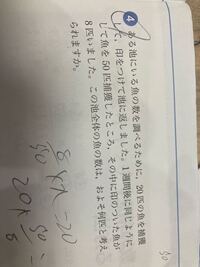 4 ある池にいる魚の数を調べるために，20匹の魚を捕獲
して，印をつけて池に返しました。1週間後に同じように
して魚を50匹捕獲したところ，その中に印のついた魚が
8匹いました。この池全体の魚の数は，およそ何匹と考え
られますか。
8/50 × x = 20
20 × 50/8 =
50